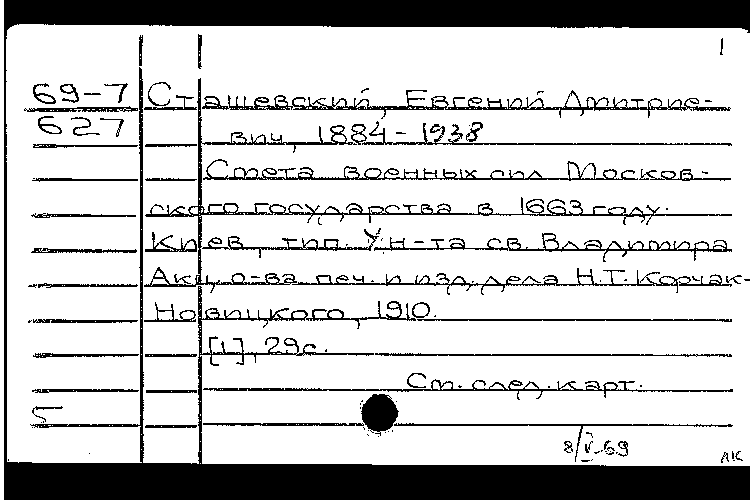 1
69-7 Сташевский, Евгений Дмитрие-
627 вич, 1884-1938
Смета военных сил Москов-
ского государства в 1663 году.
Киев, тип. Ун-та св. Владимира
Акц. о-ва печ. и изд. дела Н.Т. Корчак-
Новицкого, 1910.
[1], 29с.
См. след. карт.
5
8/V-69
АК